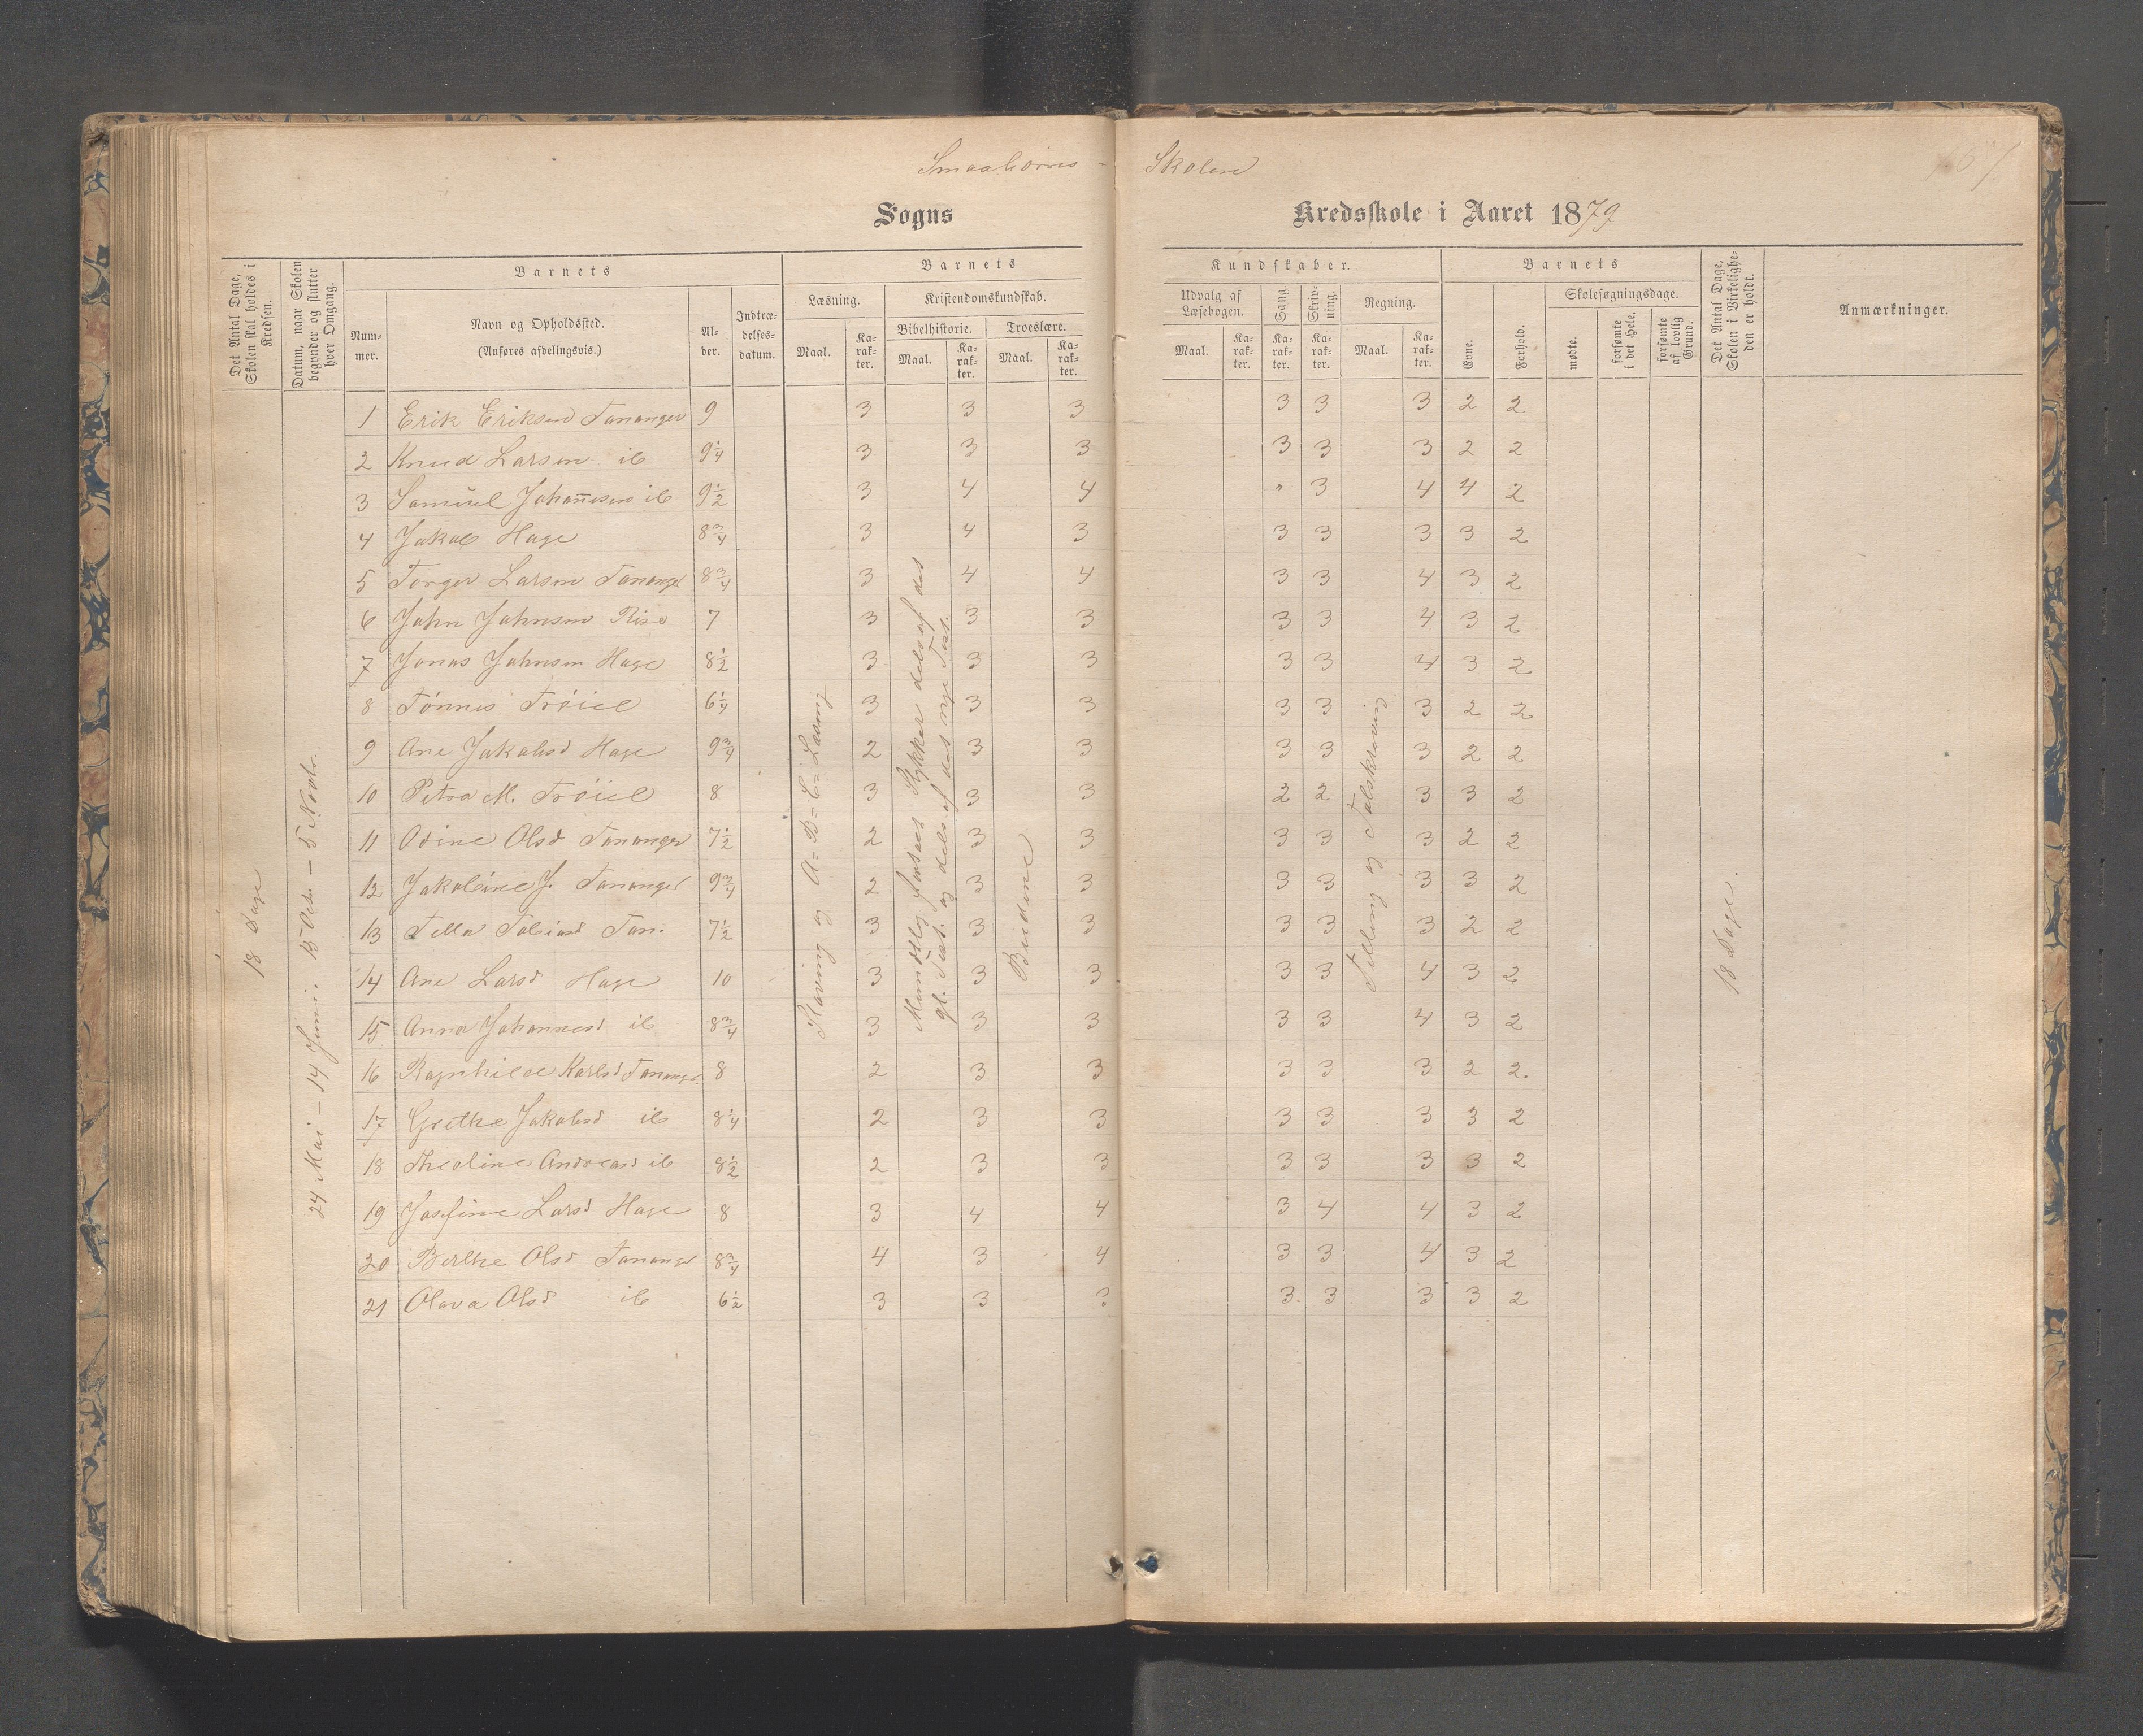 Smaabørns - Skolen
Sogns Kredsskole i Aaret 1879
Det Antal Dage, Skolen skal holdes i Kredsen.
Datum, naar Skolen begynder og slutter hver Omgang.
Barnets
Num-mer.
Navn og Opholdssted.
(Anføres afdelingsvis.)
Al-der.
Indtræ-delses-datum.
Barnets Kundskaber.
Læsning.
Maal.
Ka-rak-ter.
Kristendomskundskab.
Bibelhistorie.
Maal.
Ka-rak-ter.
Troeslære.
Maal.
Ka-rak-ter.
Udvalg af Læsebogen.
Maal.
Ka-rak-ter.
Sang.
Ka-rak-ter.
Skriv-ning.
Ka-rak-ter.
Regning.
Maal.
Ka-rak-ter.
Barnets
Evne.
Forhold.
Skolesøgningsdage.
mødte.
forsømte i det Hele.
forsømte af lovlig Grund.
Det Antal Dage, Skolen i Virkelighe-den er holdt.
Anmærkninger.
18 Dage
24 Mai - 14 Juni. 15 Octr. - 5 Novbr.
Stavning og A-B-C-Læsning
Mundtlig forsaet Stykker dels af det gl. Test. og dels af det nye Test.
Budene
Tælling og Talskrivning
18 Dage.
1 Erik Eriksen Tananger 9 3 3 3 3 3 3 2 2
2 Knud Larsen ib 9 1/4 3 3 3 3 3 3 2 2
3 Samuel Johannesen ib 9 1/2 3 4 4 " 3 4 4 2
4 Jakob Hage 8 3/4 3 4 3 3 3 3 3 2
5 Torger Larsen Tananger 8 3/4 3 4 4 3 3 4 3 2
6 John Johnsen Risa 7 3 3 3 3 3 4 3 2
7 Jonas Johnsen Hage 8 1/2 3 3 3 3 3 4 3 2
8 Tönnes Tröiel 6 1/4 3 3 3 3 3 3 2 2
9 Ane Jakobsd Hage 9 3/4 2 3 3 3 3 3 2 2
10 Petra M. Tröiel 8 3 3 3 2 2 3 3 2
11 Odine Olsd Tananger 7 1/2 2 3 3 3 3 3 2 2
12 Jakobine J. Tananger 9 3/4 2 3 3 3 3 3 3 2
13 Tella Tobiasd Tan. 7 1/2 3 3 3 3 3 3 2 2
14 Ane Larsd Hage 10 3 3 3 3 3 4 3 2
15 Anna Johannesd ib 8 3/4 3 3 3 3 3 4 3 2
16 Ragnhild Karlsd Tananger 8 2 3 3 3 3 3 2 2
17 Grethe Jakobsd ib 8 1/4 2 3 3 3 3 3 3 2
18 Theoline Andreasd ib 8 1/2 2 3 3 3 3 3 3 2
19 Josefine Larsd Hage 8 3 4 4 3 4 4 3 2
20 Berthe Olsd Tananger 8 3/4 4 3 4 3 3 4 3 2
21 Olava Olsd ib 6 1/2 3 3 3 3 3 3 3 2